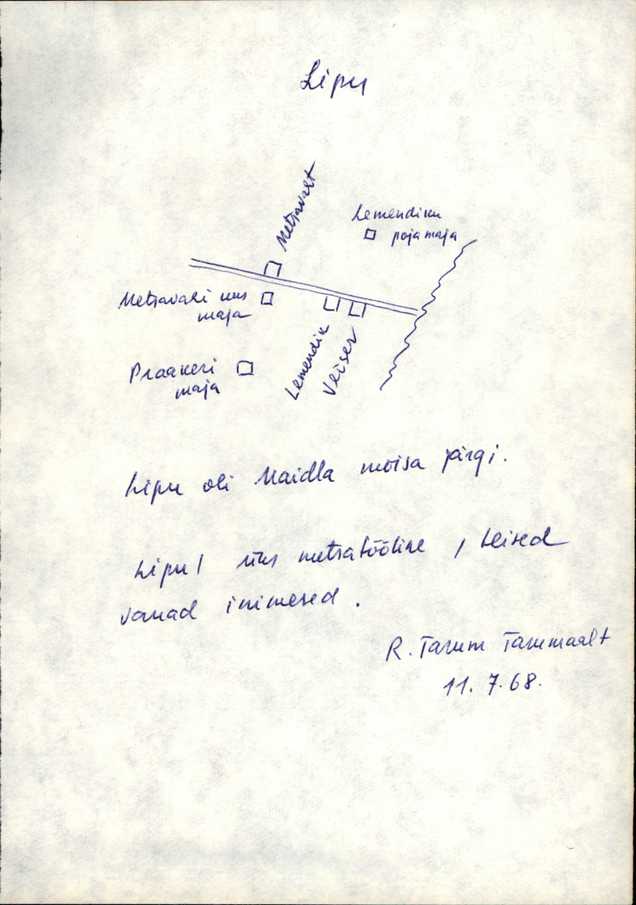 Lipu
Metsavalt
Lemendiku
poja maja
Metsavahi uus
maja
Lemendik
Veiser
Praakeri
maja
Lipu oli Maidla mõisa järgi.
Lipul üks metsatööline, teised
vanad inimesed.
R. Tamm Tammaalt
11. 7. 68.